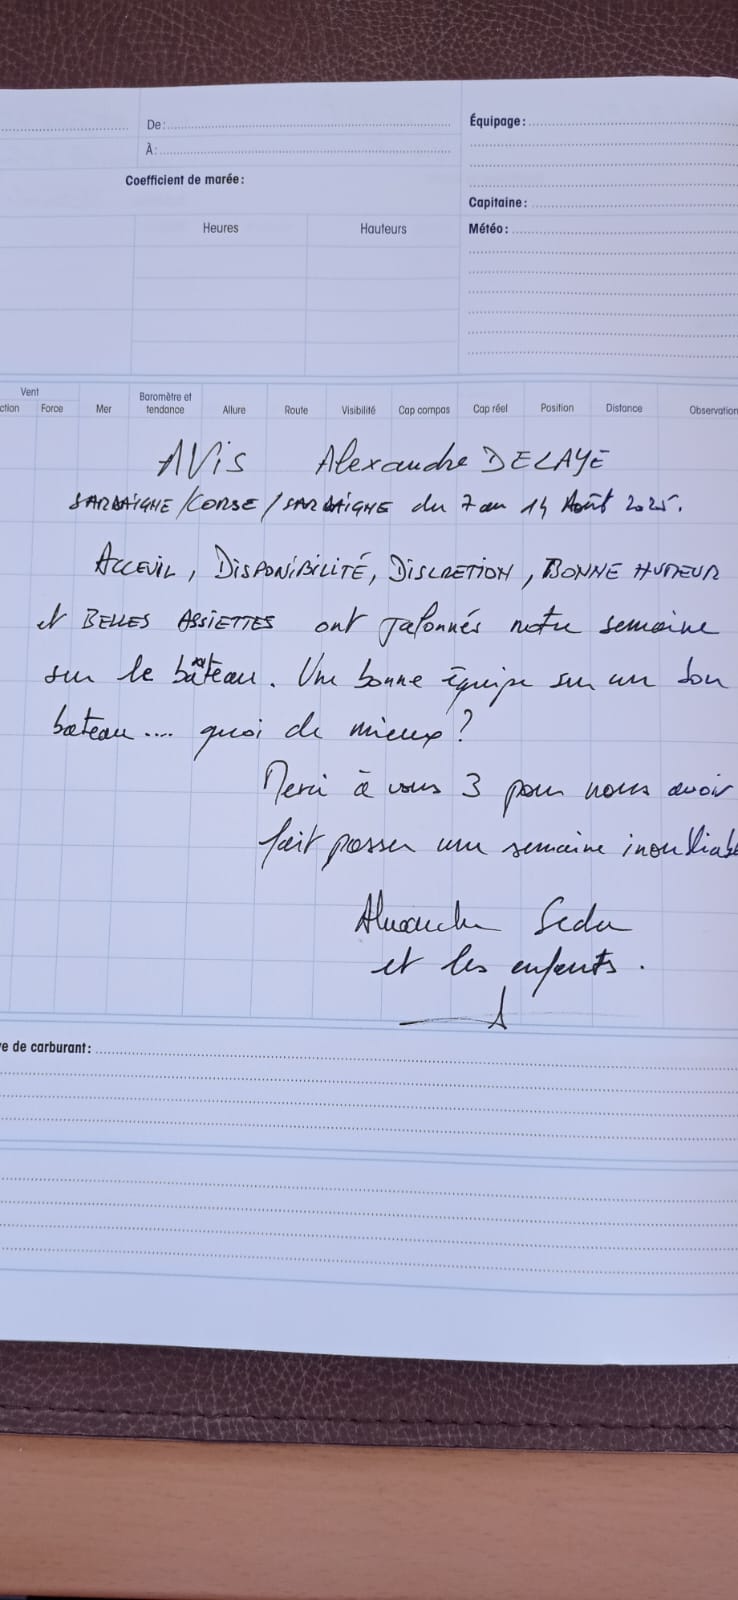 De:
Équipage:
À:
Coefficient de marée:
Capitaine:
Heures Hauteurs Météo:
Vent
ction Force Mer Baromètre et tendance Allure Route Visibilité Cap compas Cap réel Position Distance Observation
AVis Alexandre DELAYE
SARDAIGNE/CORSE/SARDAIGNE du 7 au 14 Août 2025.
ACCEUIL, DISPONIBILITÉ, DISCRETION, BONNE HUMEUR
et BELLES ASSIETTES ont jalonnés notre semaine
sur le bâteau. Une bonne équipe sur un bon
bateau.... quoi de mieux?
Merci à vous 3 pour nous avoir
fait passer une semaine inoubliable
Alexandre
et les enfants.
e de carburant: